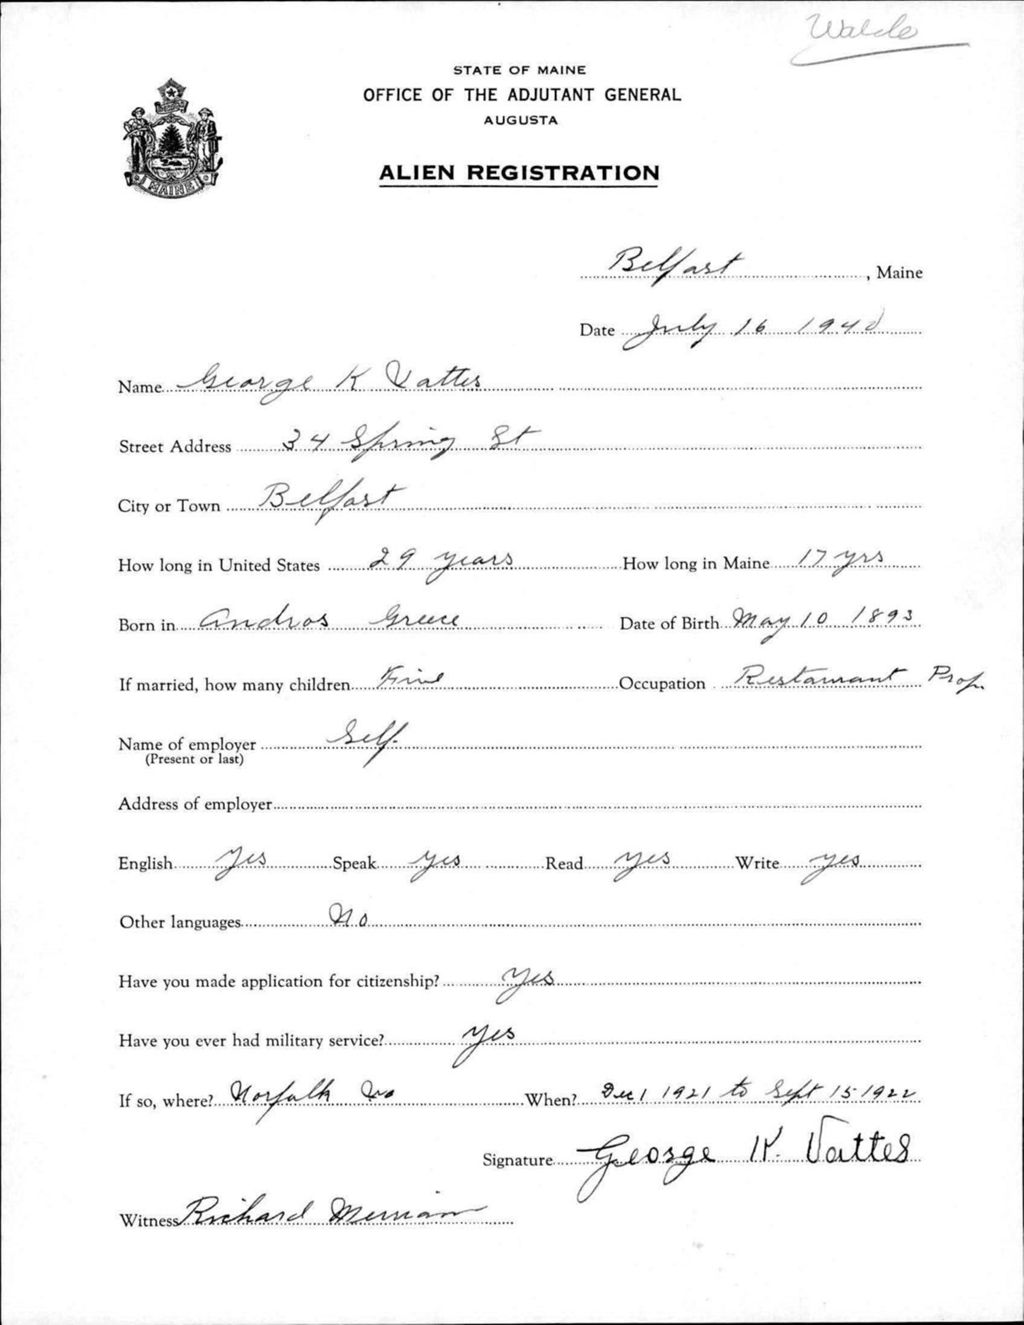 Waldo
STATE OF MAINE
OFFICE OF THE ADJUTANT GENERAL
AUGUSTA
MAINE
ALIEN REGISTRATION
Belfast, Maine
Date July 16 1940
Name George K Vattes
Street Address 34 Spring St
City or Town Belfast
How long in United States 29 years How long in Maine 17 yrs
Born in Andros Greece Date of Birth May 10 1893
If married, how many children Five Occupation Restaurant Prop.
Name of employer Self.
(Present or last)
Address of employer
English Yes Speak yes Read yes Write yes
Other languages No
Have you made application for citizenship? Yes
Have you ever had military service? Yes
If so, where? Norfolk Va When? Dec 1 1921 to Sept 15 1922
Signature George K. Vattes
Witness Richard Merriam